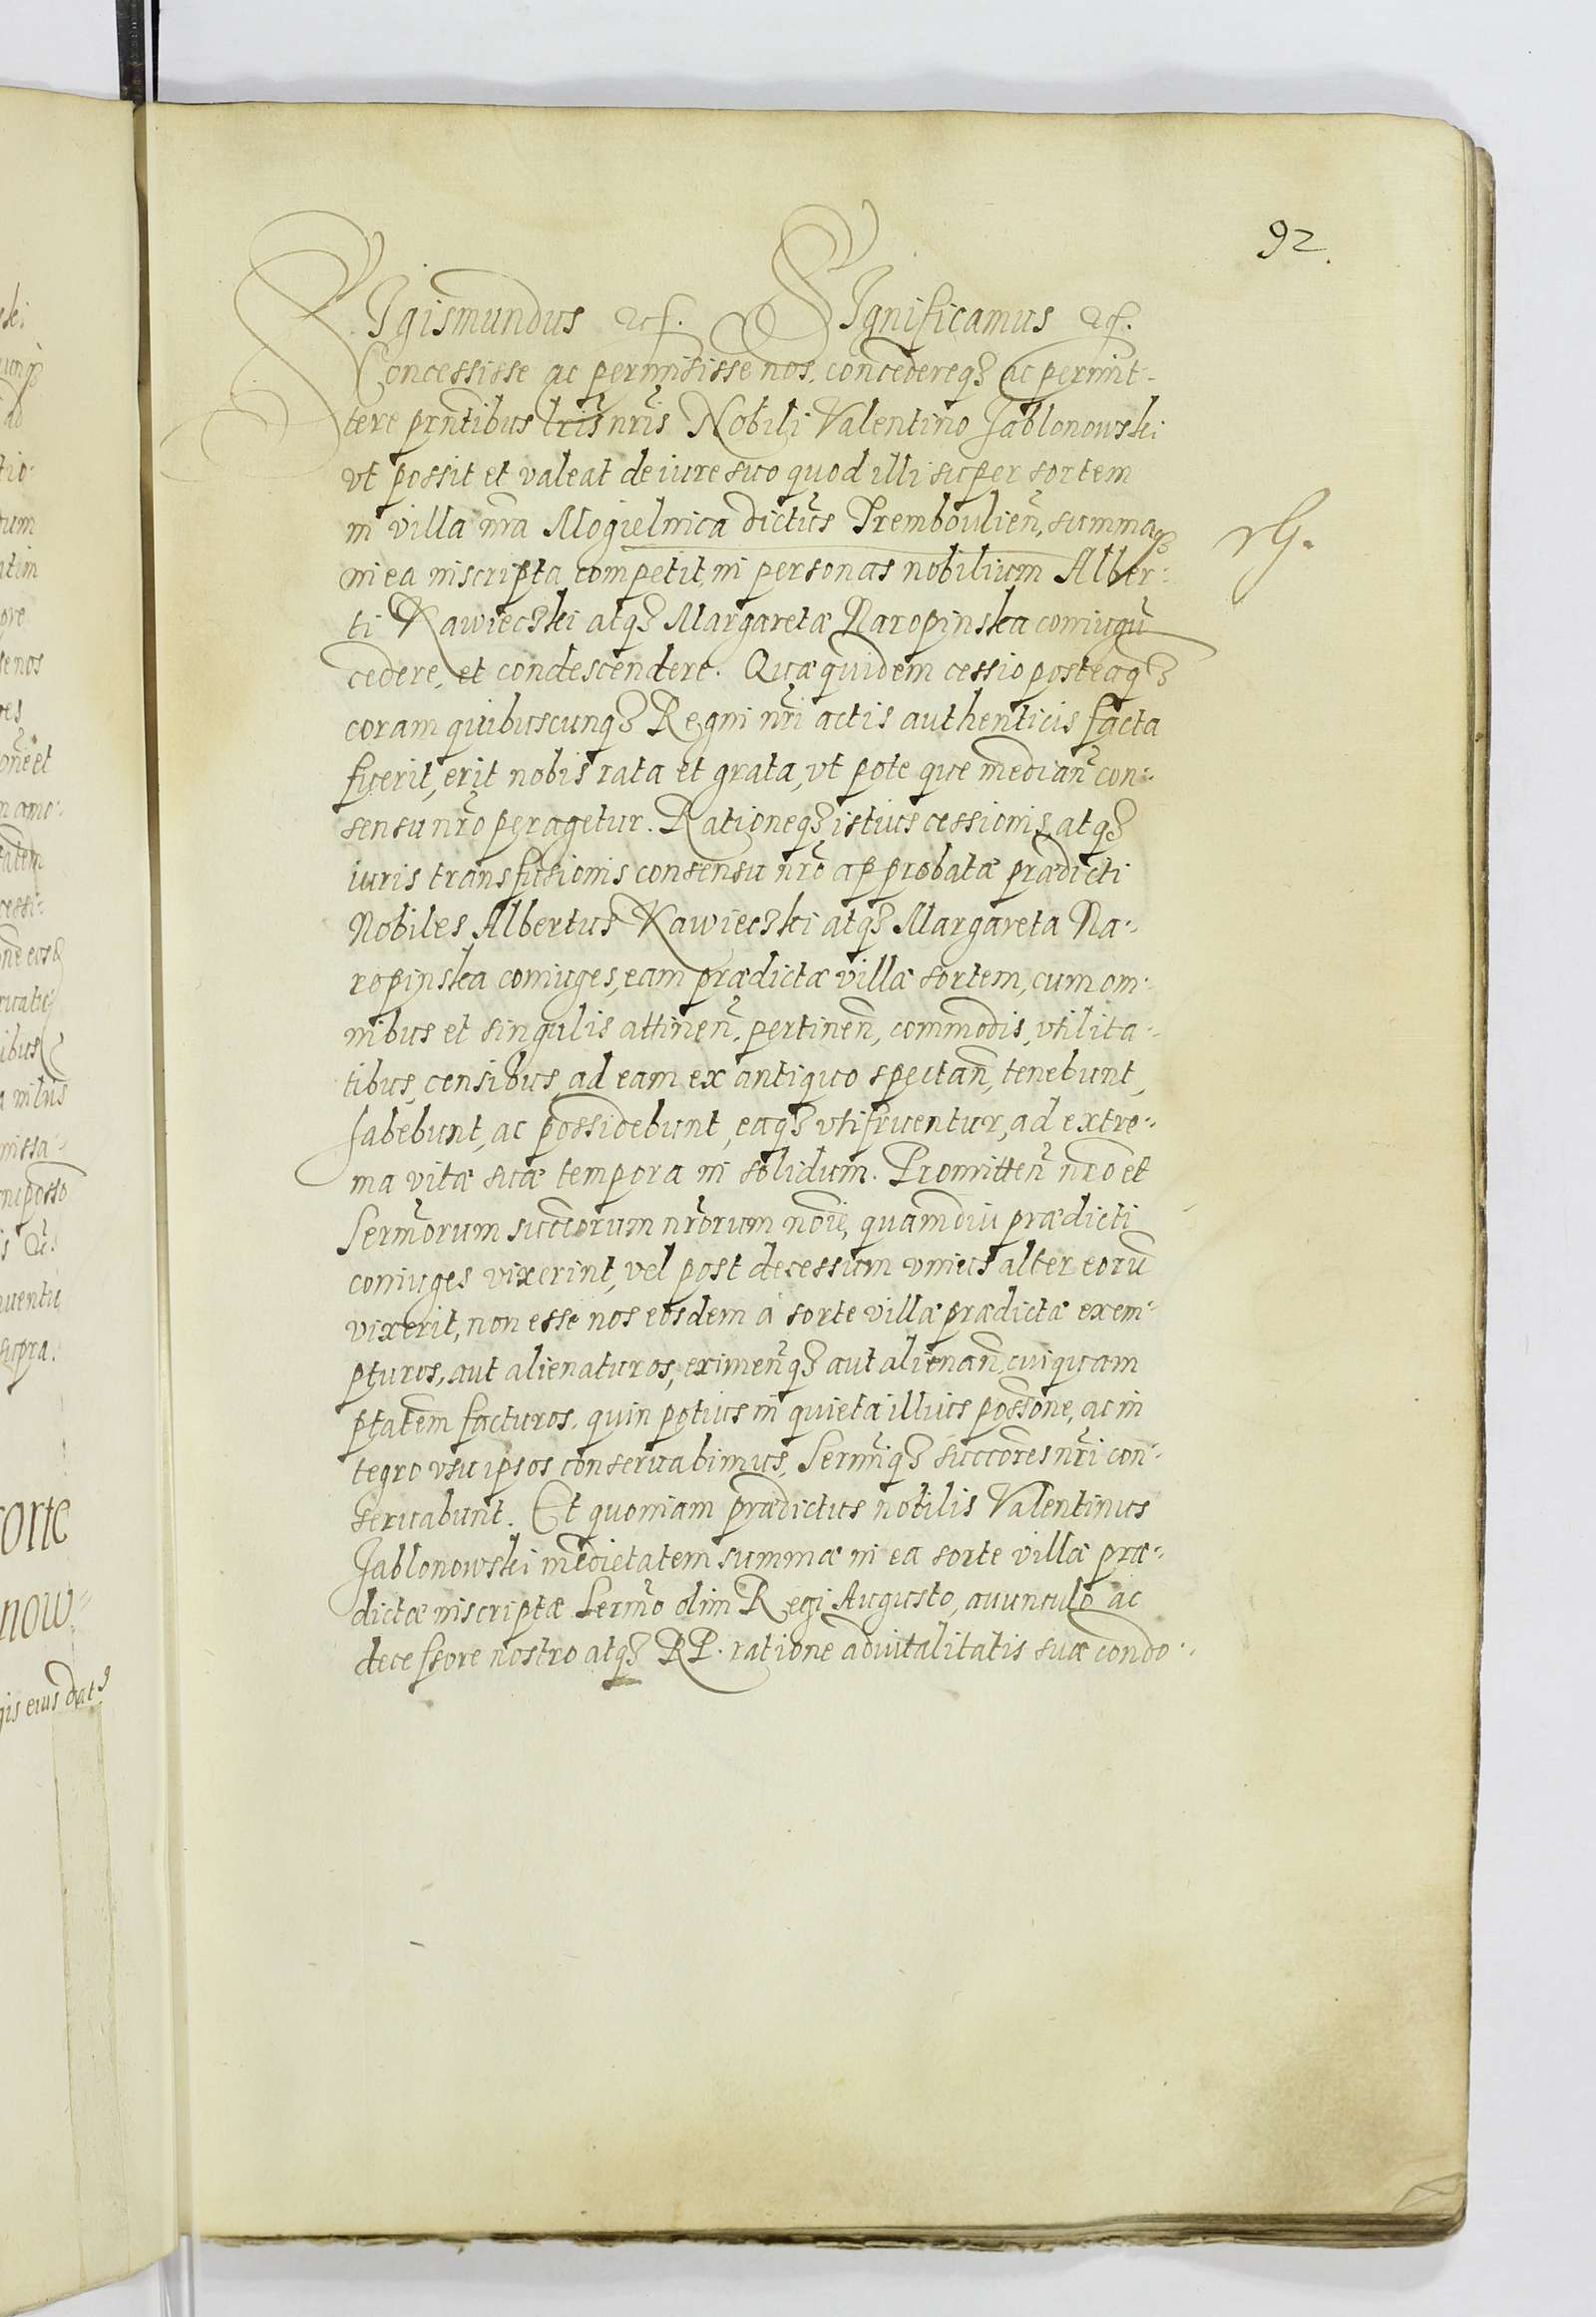 92.
Sigismundus etc. Significamus etc.
Concessisse ac permisisse nos, concedereq3 ac permit-
tere prñtibus lris nris Nobili Valentino Jablonowski
vt possit et valeat de iure suo quod illi super sortem
in villa nra Mogielnica dictus Trembovlien̄, summaq3
in ea inscripta competit, in personas nobilium Alber:
ti Kawieczki atq3 Margaretæ Naropinska coniugū
cedere, et condescendere. Quæ quidem cessio posteaq3
coram quibuscunq3 Regni nri actis authenticis facta
fuerit, erit nobis rata et grata, vt pote quæ median̄ con-:
sensu nro peragetur. Rationeq3 istius cessionis, atq3
iuris transfusionis consensu nro approbatæ prædicti
Nobiles Albertus Kawieczki atq3 Margareta Na-:
ropinska coniuges, eam prædictæ villæ sortem, cum om-
nibus et singulis attinen̄, pertinen̄, commodis, vtilita-:
tibus, censibus, ad eam ex antiquo spectan̄, tenebunt,
habebunt, ac possidebunt, eaq3 vtifruentur, ad extre-:
ma vitæ suæ tempora in solidum. Promitten̄ nro et
Sermorum succorum nrorum noie, quamdiu prædicti
coniuges vixerint, vel post decessum vnius alter eorū
vixerit, non esse nos eosdem à sorte villæ prædictæ exem-:
pturos, aut alienaturos, eximen̄q3 aut alienan̄ cuiquam
ptatem facturos, quin potius in quieta illius possone, ac in
tegro vsu ipsos conseruabimus, Sermiq3 succores nri con-:
seruabunt. Et quoniam prædictus nobilis Valentinus
Jablonowski medietatem summæ in ea sorte villæ præ-:
dictæ inscriptæ Sermo olim Regi Augusto, auunculo ac
decessore nostro atq3 RP. ratione aduitalitatis suæ condo-: